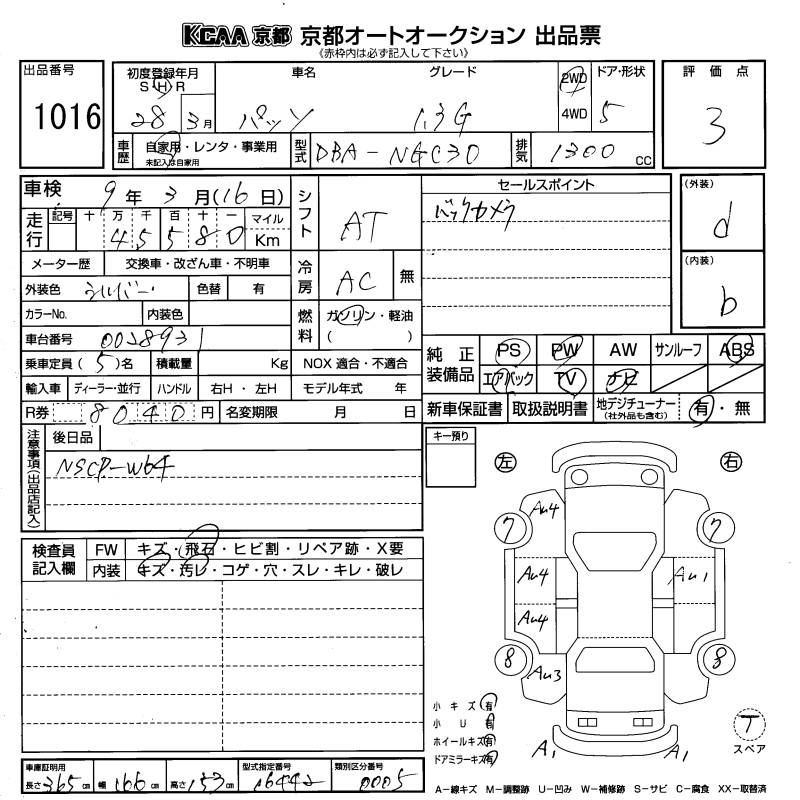 KCAA 京都 京都オートオークション 出品票
《赤枠内は必ず記入して下さい》
出品番号
1016
初度登録年月
S H R
28 3月
車名
パッソ
グレード
1.3G
2WD
4WD
ドア・形状
5
評価点
3
車歴
自家用・レンタ・事業用
未記入は自家用
型式
DBA-NGC30
排気
1300 CC
車検
9年3月(16日)
シフト
AT
セールスポイント
バックカメラ
(外装)
d
(内装)
b
走行
記号 十 万 千 百 十 一 マイル
45580 Km
メーター歴 交換車・改ざん車・不明車
冷房
AC 無
外装色 シルバー 色替 有
カラーNo. 内装色
燃料
ガソリン・軽油
( )
車台番号 0028931
乗車定員(5)名 積載量 Kg NOX適合・不適合
輸入車 ディーラー・並行 ハンドル 右H・左H モデル年式 年
R券 8040円 名変期限 月 日
純正装備品
PS PW AW サンルーフ ABS
エアバック TV ナビ
新車保証書 取扱説明書 地デジチューナー
(社外品も含む) 有・無
注意事項(出品店記入)
後日品
NSCP-W64
キー預り
左 右
検査員記入欄
FW キズ・飛石・ヒビ割・リペア跡・X要
内装 キズ・汚レ・コゲ・穴・スレ・キレ・破レ
AU4
7 7
AU4 AU1
AU4
8 8
AU3
小キズ 有
小U 有
ホイールキズ 有
ドアミラーキズ 有
A1 A1
T
スペア
車庫証明用
長さ365cm 幅166cm 高さ153cm
型式指定番号
16442
類別区分番号
0005
A-線キズ M-調整跡 U-凹み W-補修跡 S-サビ C-腐食 XX-取替済